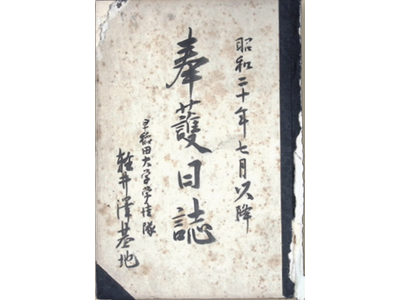 昭和二十年七月以降
奉護日誌
早稲田大学学徒隊
軽井澤基地